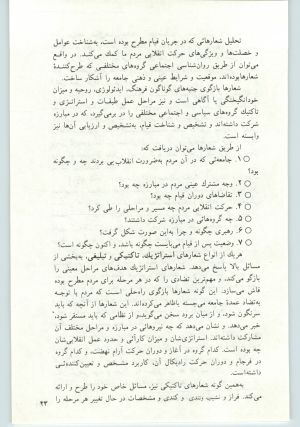 تحلیل شعارهائی که در جریان قیام مطرح بوده است، به‌شناخت عوامل
و خصلت‌ها و ویژگی‌های حرکت انقلابی مردم ما کمک می‌کند. در واقع
می‌توان از طریق روان‌شناسی اجتماعی گروه‌های مختلفی که طرح‌کنندهٔ
شعارهابوده‌اند، موقعیت و شرایط عینی و ذهنی جامعه را آشکار ساخت.
شعارها بازگوی جنبه‌های گوناگون فرهنگ، ایدئولوژی، روحیه و میزان
خودانگیختگی یا آگاهی است و نیز مراحل عمل طبقات و استراتژی و
تاکتیک گروه‌های سیاسی و اجتماعی مختلفی را در برمی‌گیرد، که در مبارزه
شرکت داشته‌اند و تشخیص و شناخت قیام، به‌تشخیص و ارزیابی آن‌ها نیز
وابسته است.
از طریق شعارها می‌توان دریافت که:
○ ۱. جامعه‌ئی که در آن مردم به‌ضرورت انقلاب‌پی بردند چه و چگونه
بود؟
○ ۲. وجه مشترك عینی مردم در مبارزه چه بود؟
○ ۳. تقاضاهای دوران قیام چه بود؟
○ ۴. حرکت انقلابی مردم چه مسیر و مراحلی را طی کرد؟
○ ۵. چه گروه‌هائی در مبارزه شرکت داشتند؟
○ ۶. رهبری چگونه و چرا به‌این صورت شکل گرفت؟
○ ۷. وضعیت پس از قیام می‌بایست چگونه باشد، و اکنون چگونه است؟
هریك از انواع شعارهای استراتژیك، تاکتیکی و تبلیغی، به‌بخشی از
مسائل بالا پاسخ می‌دهد. شعارهای استراتژیك هدف‌های مراحل معینی را
بازگو می‌کند، و مهم‌ترین تضادی را که در هر مرحله برای مردم مطرح بوده
فاش می‌سازد. این گونه شعارها بازگوی راه‌حلی است‌که مردم با توجه
به‌تضاد عمدهٔ جامعه می‌جسته یاظاهر می‌کرده‌اند. این شعارها از آنچه که باید
سرنگون شود، و از میان برود سخن می‌گوید‌و از نظامی که باید مستقر شود،
خبر می‌دهد. و نشان می‌دهد که چه نیروهائی در مبارزه و مراحل مختلف آن
مشارکت داشته‌اند. استراتژی‌شان و میزان کارآئی و حدود عمل انقلابی‌شان
چه بوده است. کدام گروه در آغاز و دوران حرکت آرام نهضت، و کدام گروه
در فرجام و دوران حرکت رادیکال آن، کاربرد مشخص و تعیین‌کننده‌ئی
داشته‌است.
به‌همین گونه شعارهای تاکتیکی نیز، مسائل خاص خود را طرح و ارائه
می‌کند. فراز و نشیب وتندی و کندی و مشخصات در حال تغییر هر مرحله را
۲۳